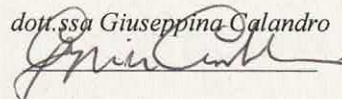 dott.ssa Giuseppina Calandro